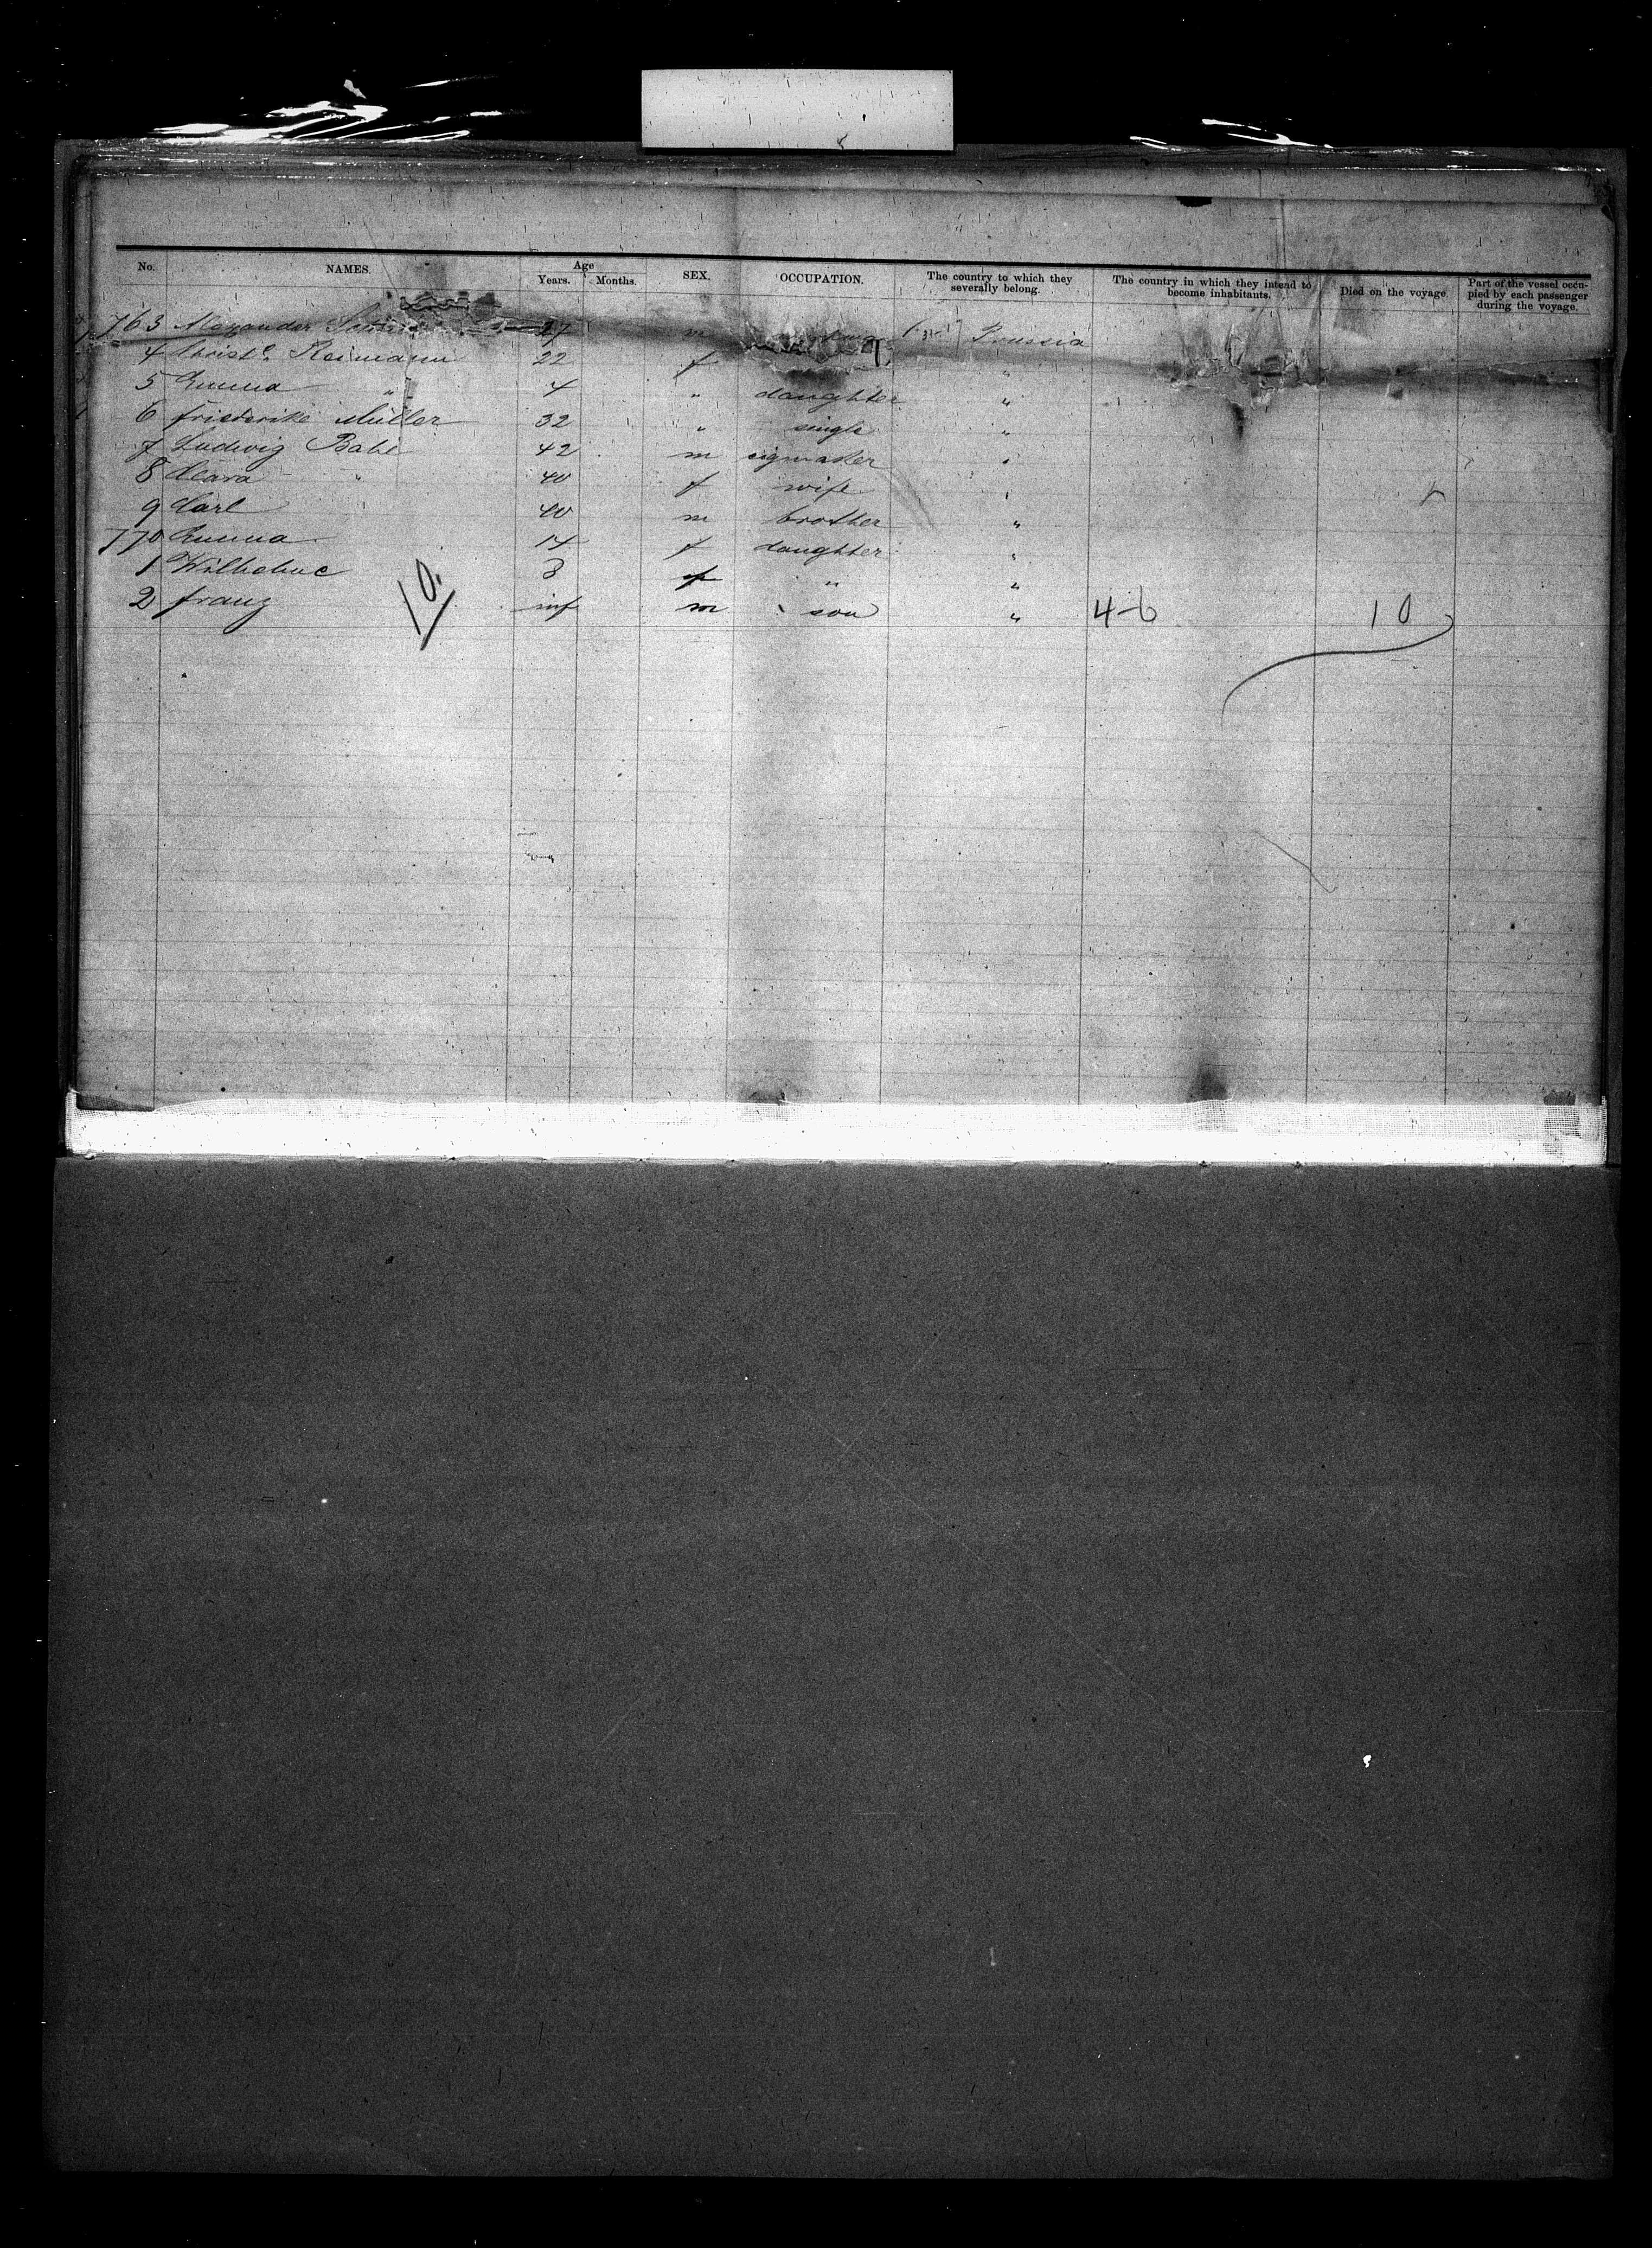 No. NAMES. Age Years. Months. SEX. OCCUPATION. The country to which they severally belong. The country in which they intend to become inhabitants. Died on the voyage. Part of the vessel occupied by each passenger during the voyage.
763 Alexander 27 m Prussia
4 Christe Reimann 22 f "
5 Emma " 4 " daughter "
6 Friederike Müller 32 " single "
7 Ludwig Babe 42 m cigmaker "
8 Clara " 40 f wife "
9 Carl 40 m brother "
770 Emma 14 f daughter "
1 Wilhelmine 3 f " "
2 Franz inf m son " 4-6 10
10.